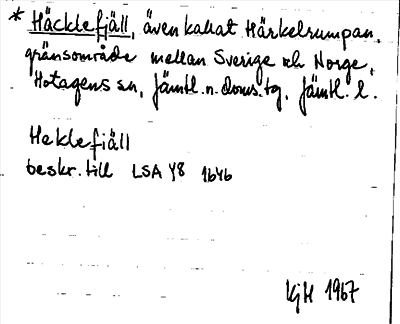 * Häcklefjäll, även kallat Härkelrumpan,
gränsområde mellan Sverige och Norge,
Hotagens sn, Jämtl. n. doms. tg, Jämtl. l.
Heklefjäll
beskr. till LSA Y8 1646
KjH 1967